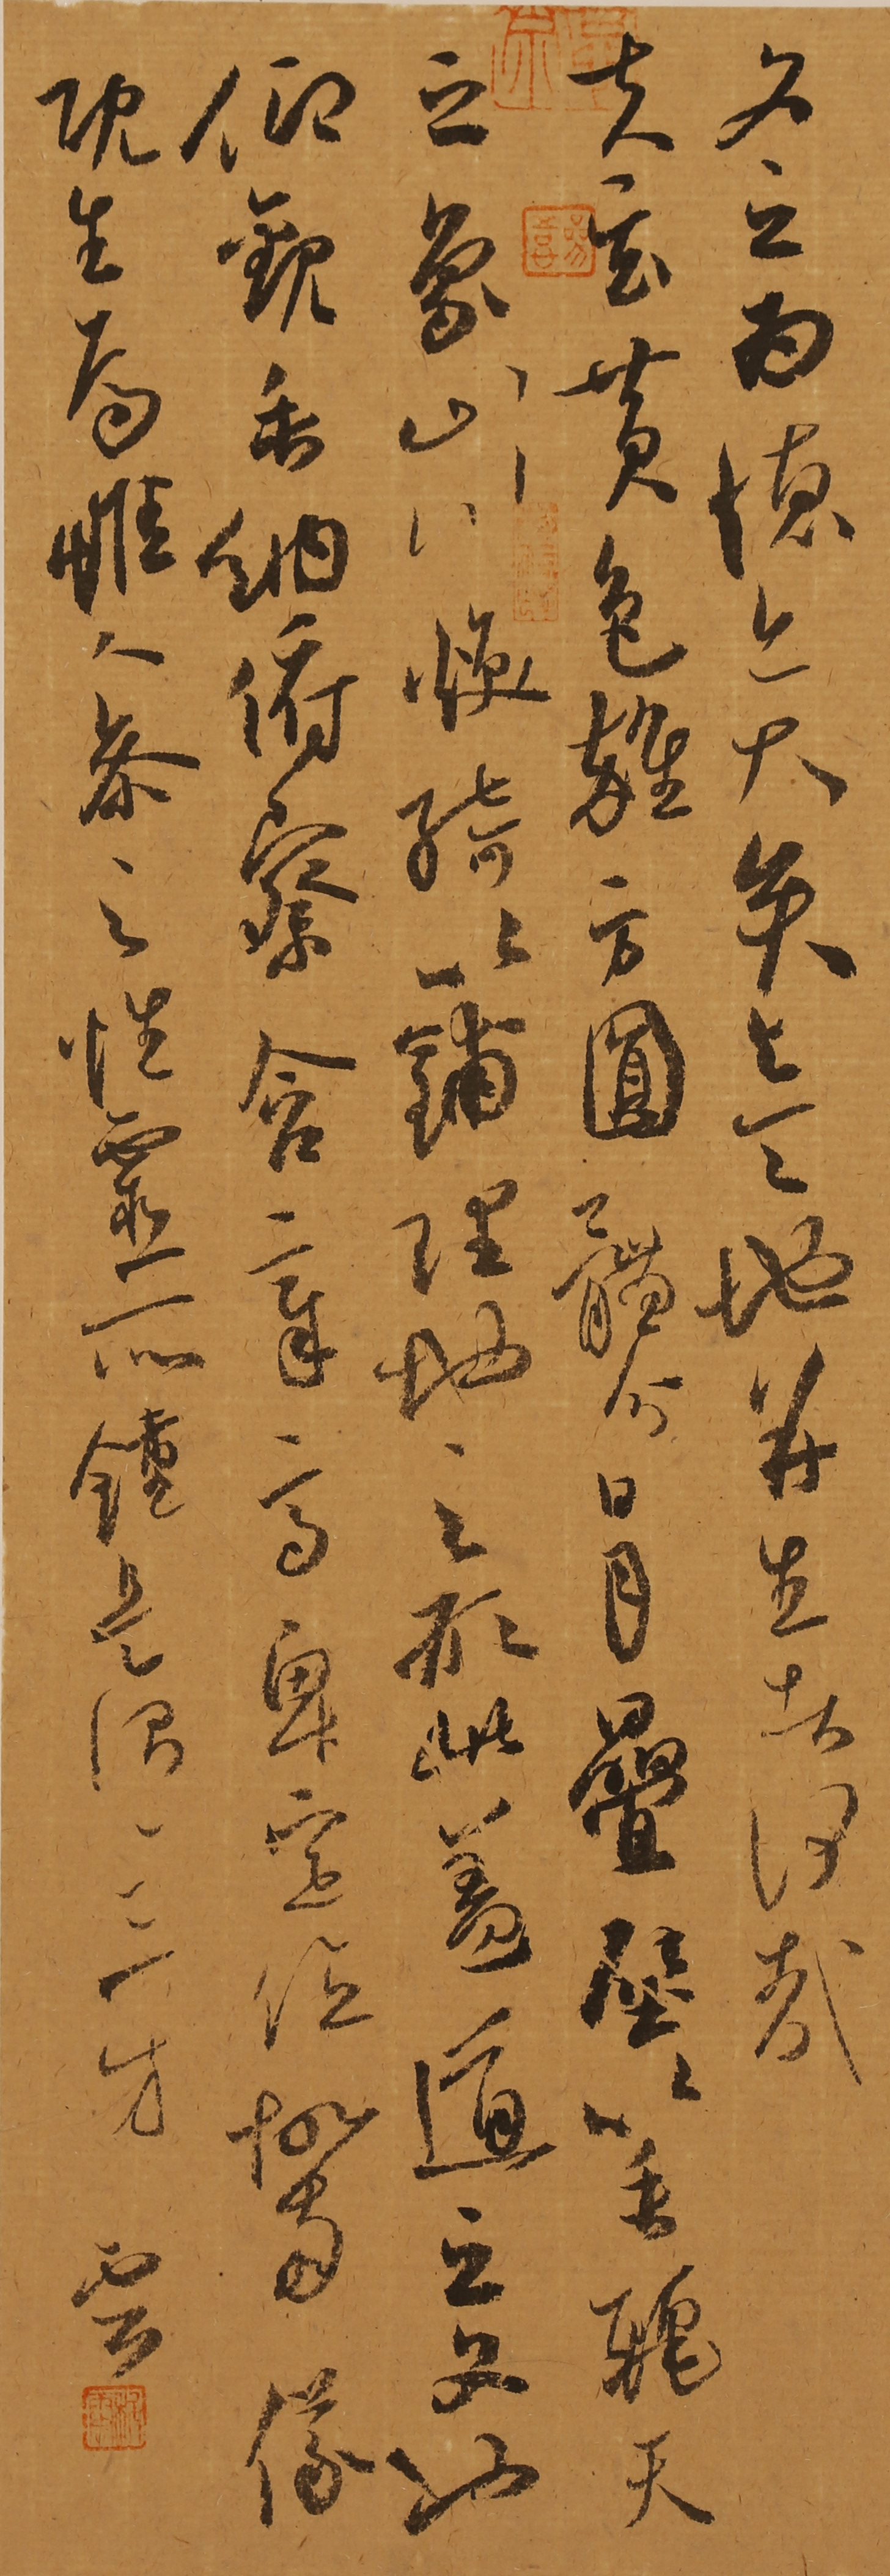 文之為德也大矣與天地並生者何哉
夫玄黄色雜方圓體分日月疊璧以垂麗天
之象山川煥綺以鋪理地之形此蓋道之文也
仰觀吐納俯察含章高卑定位故兩儀
既生焉惟人參之性靈所鍾是謂三才
雲